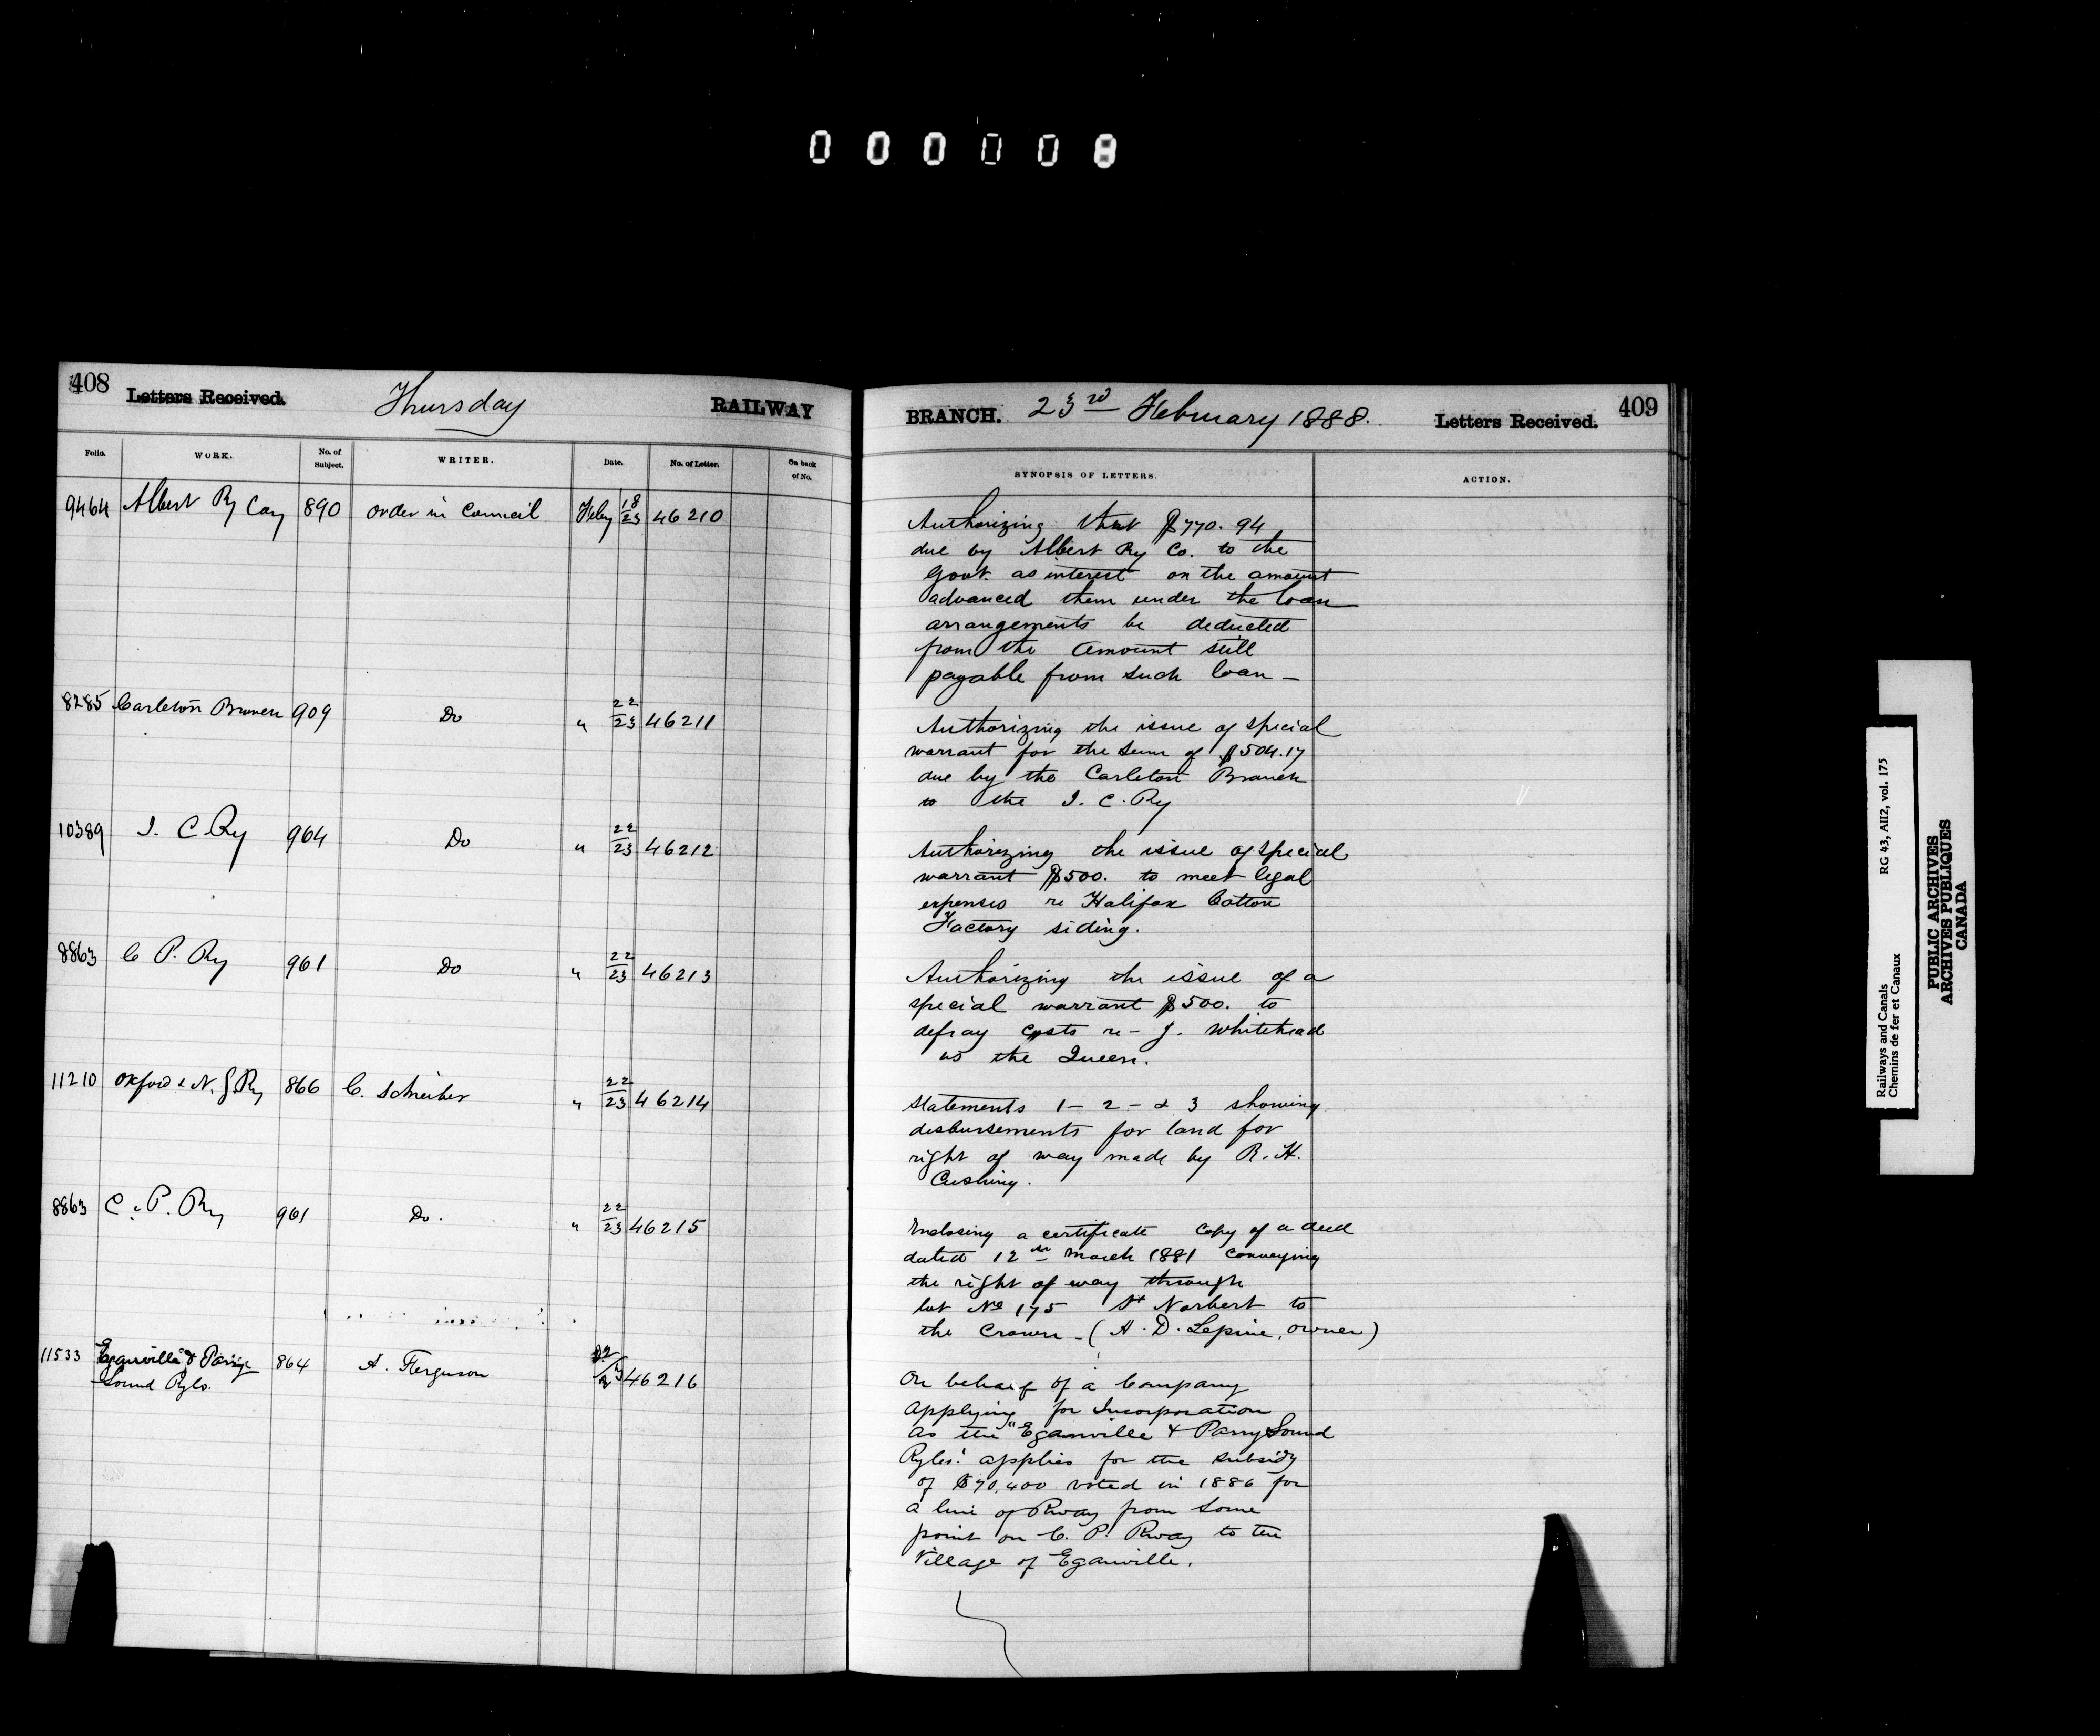 000008
408 Letters Received. Thursday RAILWAY
Folio. WORK. No. of Subject. WRITER. Date. No. of Letter. On back of No.
9464 Albert Ry Coy 890 Order in Council Feby 18/23 46210
8285 Carleton Branch 909 Do " 22/23 46211
10389 I. C. Ry 964 Do " 22/23 46212
8863 C P. Ry 961 Do " 22/23 46213
11210 Oxford & N. G. Ry 866 C. Schreiber " 22/23 46214
8863 C. P. Ry 961 Do. " 22/23 46215
11533 Eganville & Parry 864 A. Ferguson 22/23 46216
Sound Ryco.
BRANCH. 23rd February 1888. Letters Received. 409
SYNOPSIS OF LETTERS. ACTION.
Authorizing that $770.94
due by Albert Ry Co. to the
Govt. as interest on the amount
advanced them under the loan
arrangements be deducted
from the amount still
payable from such loan –
Authorizing the issue of special
warrant for the sum of $504.17
due by the Carleton Branch
to the I. C. Ry
Authorizing the issue of special
warrant $500. to meet legal
expenses re Halifax Cotton
Factory siding.
Authorizing the issue of a
special warrant $500. to
defray costs re – J. Whitehead
vs the Queen.
Statements 1 – 2 – & 3 showing
disbursements for land for
right of way made by R. H.
Cushing.
Enclosing a certificate copy of a deed
dated 12th March 1881 conveying
the right of way through
lot No 175 St Norbert to
the Crown – (A. D. Lepine, owner)
On behalf of a Company
applying for Incorporation
as the "Eganville & Parry Sound
Ryco." applies for the subsidy
of $70,400 voted in 1886 for
a line of Rway from some
point on C. P. Rway to the
Village of Eganville.
Railways and Canals RG 43, AII2, vol. 175
Chemins de fer et Canaux
PUBLIC ARCHIVES
ARCHIVES PUBLIQUES
CANADA